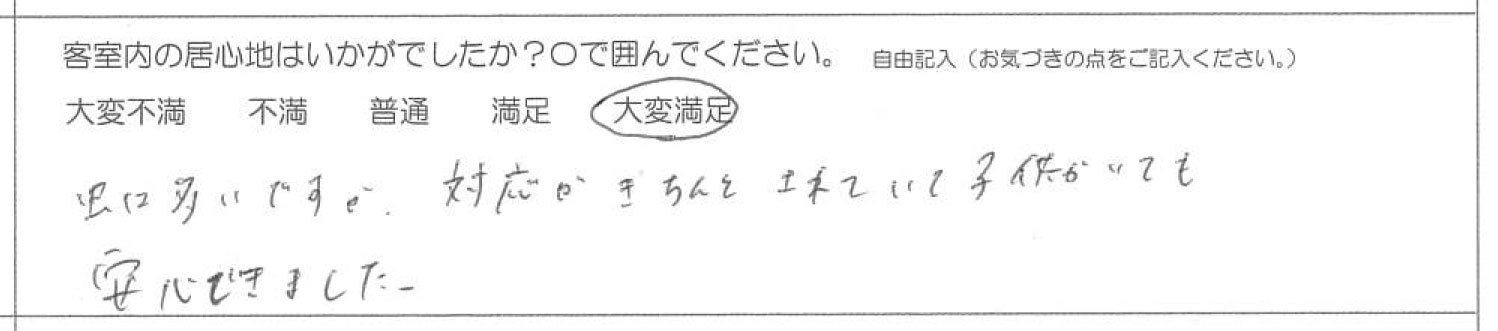 客室内の居心地はいかがでしたか?○で囲んでください。 自由記入(お気づきの点をご記入ください。)
大変不満 不満 普通 満足 大変満足
虫は多いですが、対応がきちんと出来ていて子供がいても
安心できました